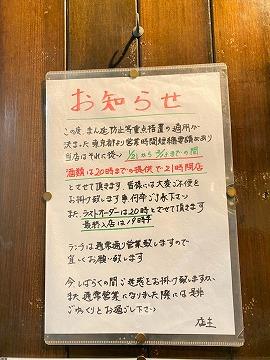 お知らせ
この度、まん延防止等重点措置の適用が
決まった東京都より営業時間短縮要請があり
当店はそれに従い 1/21から2/13までの間
酒類は20時までの提供で21時閉店
とさせて頂きます。皆様には大変ご不便を
お掛け致します事何卒ご了承下さい
また、ラストオーダーは20時とさせて頂きます
最終入店は19時半
ランチは通常通り営業致しますので
宜しくお願い致します
今しばらくの間ご迷惑をお掛け致しますが、
また通常営業になりました際には是非
ごゆっくりとお過し下さい
店主